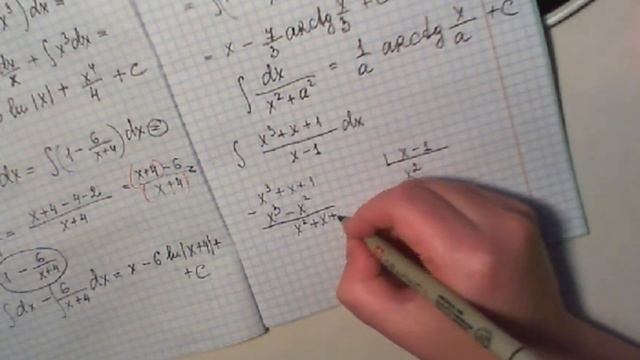 x³) dx =
dx/x + ∫ x³dx =
ln |x| + x⁴/4 + C
dx = ∫ (1 - 6/(x+4)) dx =
= (x+4-4-2)/(x+4) = ((x+4)-6)/(x+4) =
1 - 6/(x+4)
∫ dx - ∫ 6/(x+4) dx = x - 6 ln |x+4| +
+ C
= x - 7/3 arctg x/3 + C
∫ dx/(x²+a²) = 1/a arctg x/a + C
∫ (x³+x+1)/(x-1) dx
x³+x+1 | x-1
- x³-x² x²
x²+x+